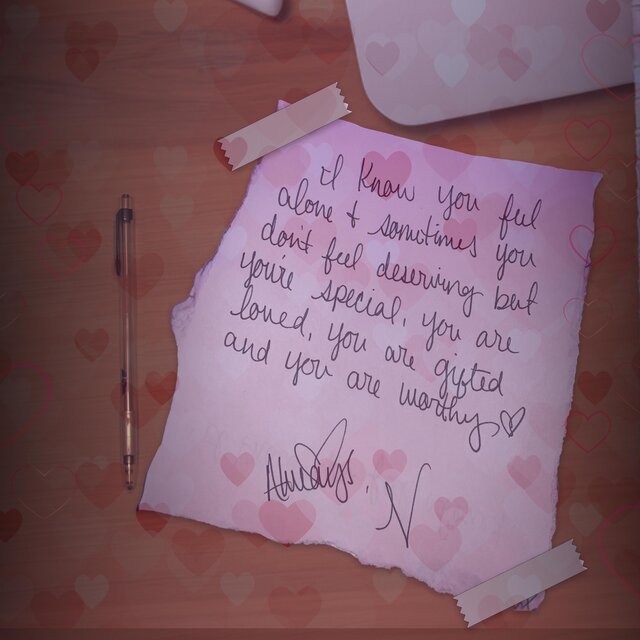 I know you feel
alone & sometimes you
don't feel deserving but
you're special, you are
loved, you are gifted
and you are worthy ♡
Always, N